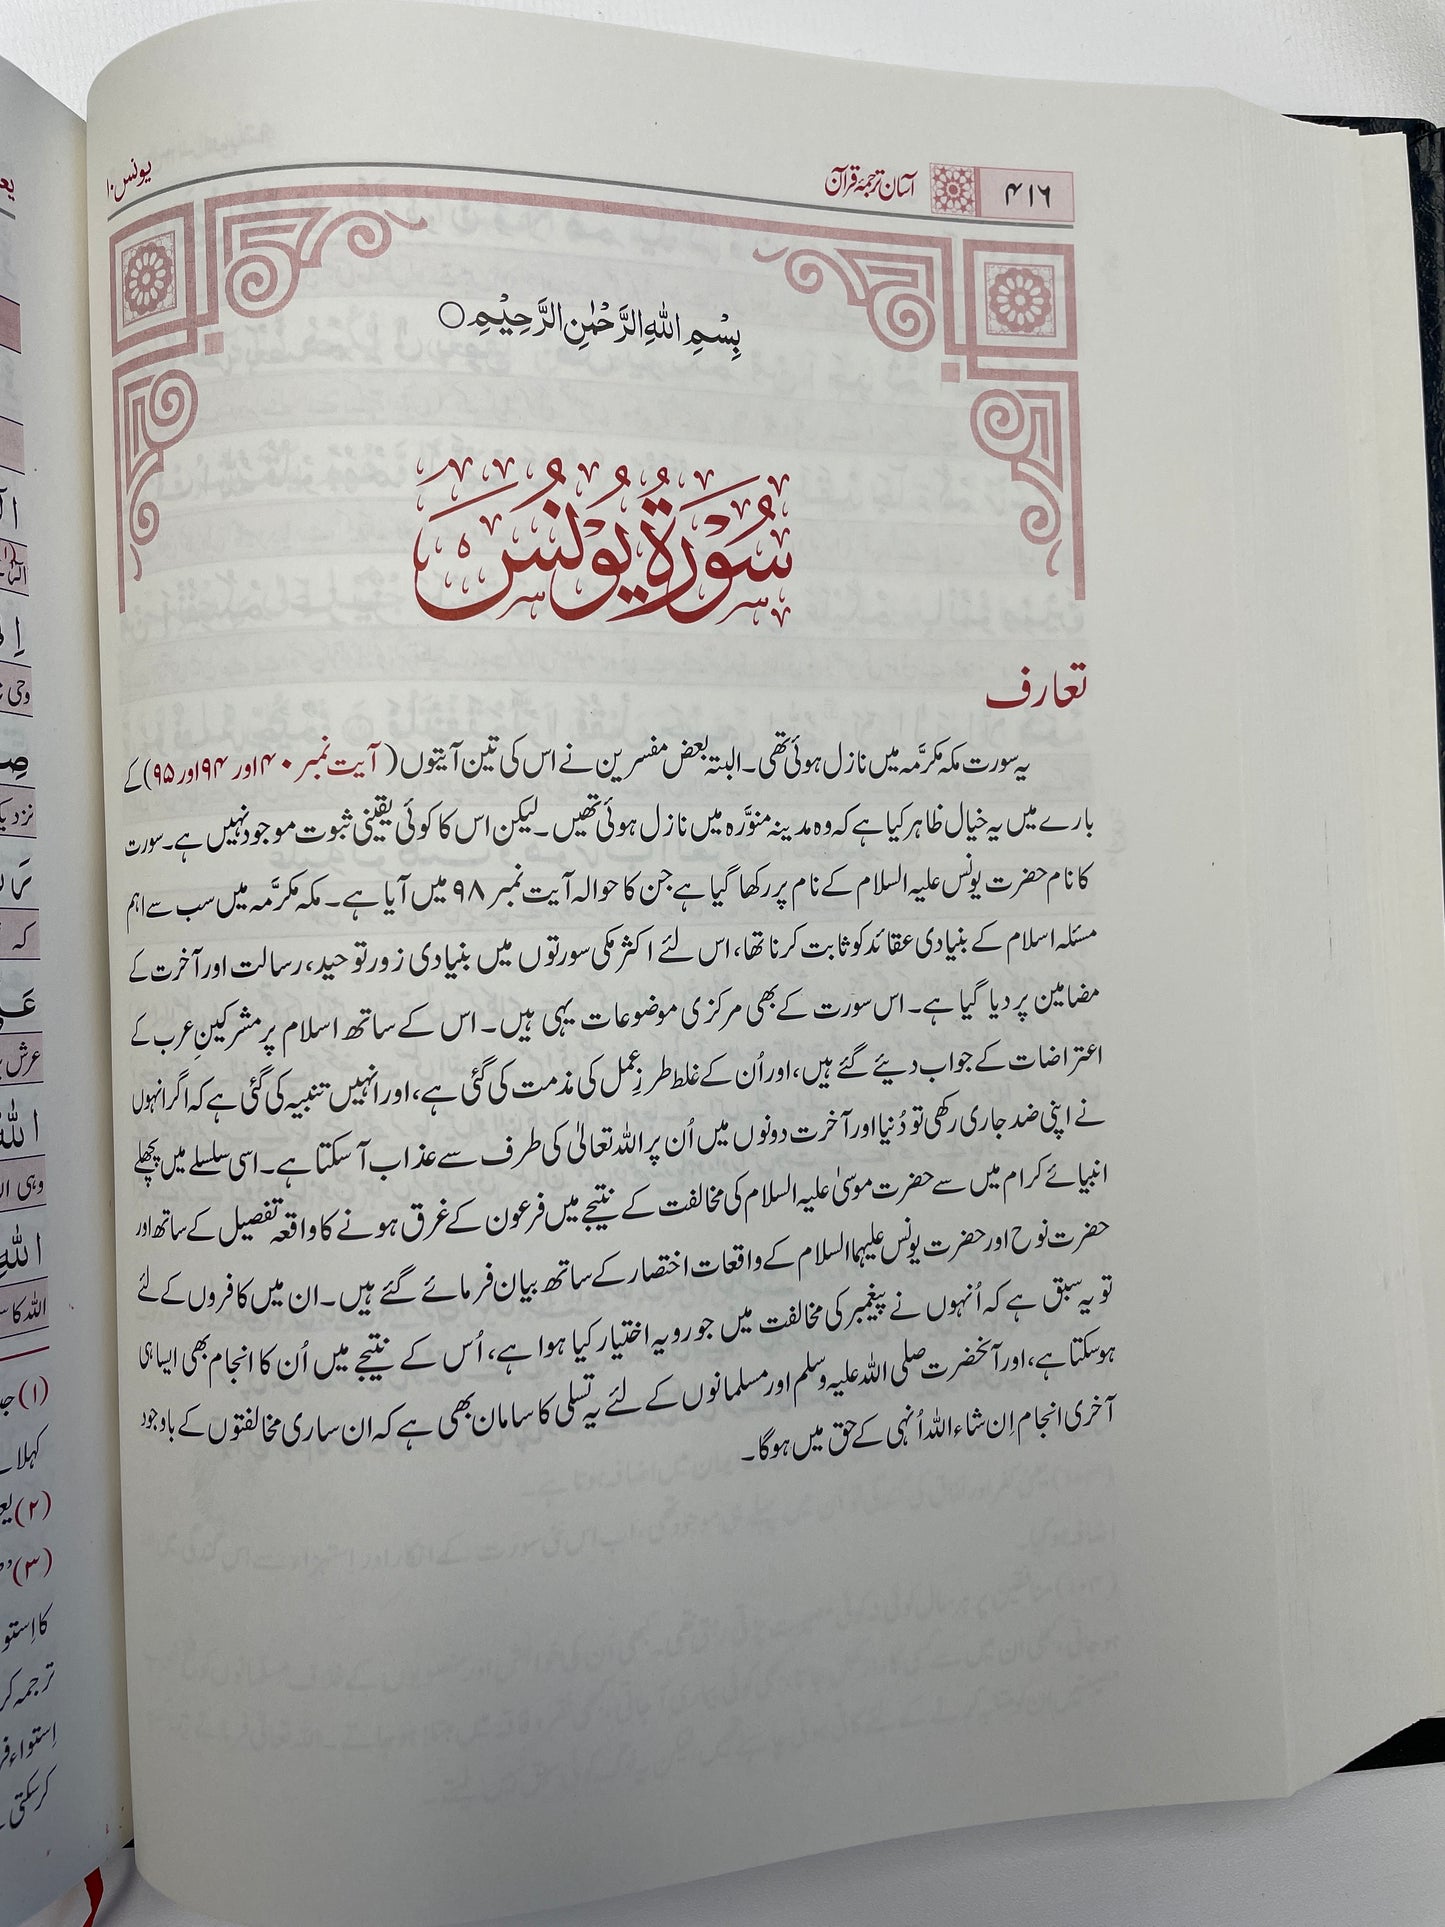 ۴۱۶
آسان ترجمۂ قرآن
یونس ۱۰
بِسْمِ اللّٰهِ الرَّحْمٰنِ الرَّحِيْمِ ○
سُوْرَةُ يُوْنُسَ
تعارف
یہ سورت مکہ مکرّمہ میں نازل ہوئی تھی۔ البتہ بعض مفسرین نے اس کی تین آیتوں (آیت نمبر ۴۰ اور ۹۴ اور ۹۵) کے
بارے میں یہ خیال ظاہر کیا ہے کہ وہ مدینہ منوَّرہ میں نازل ہوئی تھیں۔ لیکن اس کا کوئی یقینی ثبوت موجود نہیں ہے۔ سورت
کا نام حضرت یونس علیہ السلام کے نام پر رکھا گیا ہے جن کا حوالہ آیت نمبر ۹۸ میں آیا ہے۔ مکہ مکرَّمہ میں سب سے اہم
مسئلہ اسلام کے بنیادی عقائد کو ثابت کرنا تھا، اس لئے اکثر مکی سورتوں میں بنیادی زور توحید، رسالت اور آخرت کے
مضامین پر دیا گیا ہے۔ اس سورت کے بھی مرکزی موضوعات یہی ہیں۔ اس کے ساتھ اسلام پر مشرکینِ عرب کے
اعتراضات کے جواب دیئے گئے ہیں، اور اُن کے غلط طرزِ عمل کی مذمت کی گئی ہے، اور انہیں تنبیہ کی گئی ہے کہ اگر انہوں
نے اپنی ضد جاری رکھی تو دُنیا اور آخرت دونوں میں اُن پر اللہ تعالیٰ کی طرف سے عذاب آ سکتا ہے۔ اسی سلسلے میں پچھلے
انبیائے کرام میں سے حضرت موسیٰ علیہ السلام کی مخالفت کے نتیجے میں فرعون کے غرق ہونے کا واقعہ تفصیل کے ساتھ اور
حضرت نوح اور حضرت یونس علیہما السلام کے واقعات اختصار کے ساتھ بیان فرمائے گئے ہیں۔ ان میں کافروں کے لئے
تو یہ سبق ہے کہ اُنہوں نے پیغمبر کی مخالفت میں جو رویہ اختیار کیا ہوا ہے، اُس کے نتیجے میں اُن کا انجام بھی ایسا ہی
ہوسکتا ہے، اور آنحضرت صلی اللہ علیہ وسلم اور مسلمانوں کے لئے یہ تسلی کا سامان بھی ہے کہ ان ساری مخالفتوں کے باوجود
آخری انجام اِن شاء اللہ اُنہی کے حق میں ہوگا۔